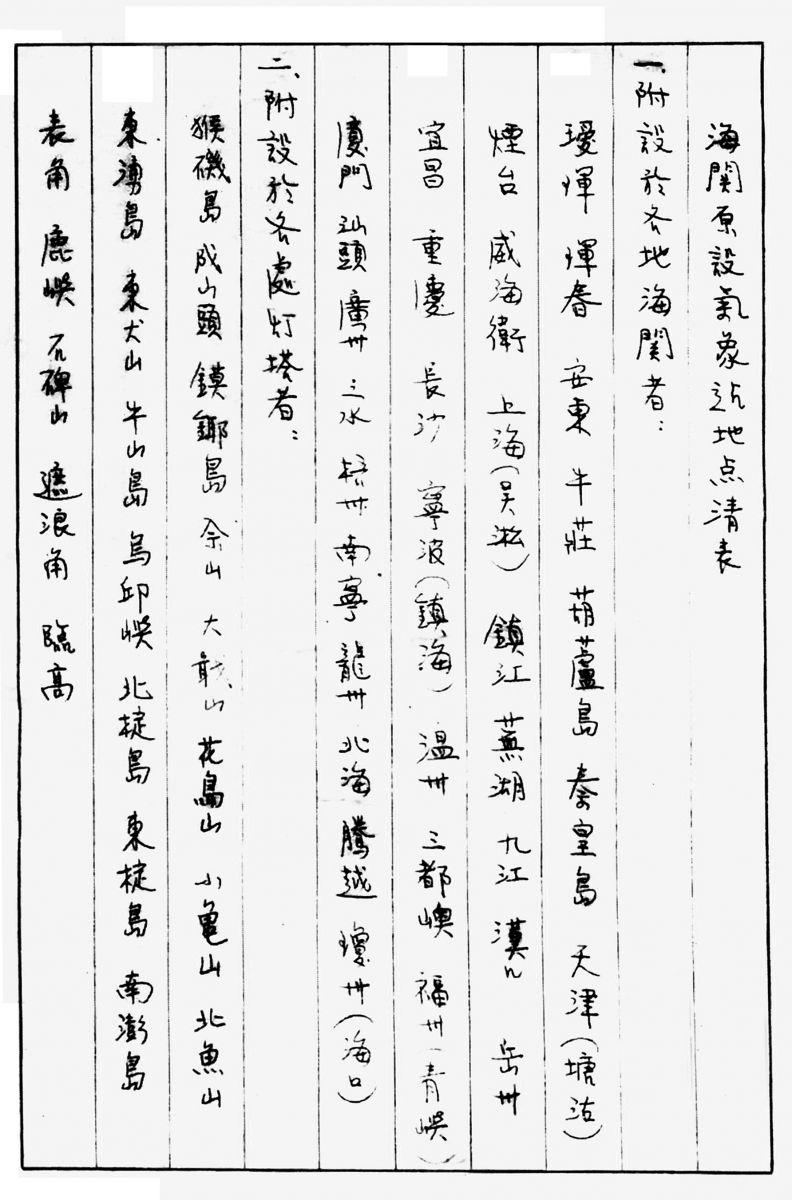 海関原設氣象站地点清表
一、附設於各地海関者：
璦琿 琿春 安東 牛莊 葫蘆島 秦皇島 天津(塘沽)
煙台 威海衛 上海(吴淞) 鎮江 蕪湖 九江 漢口 岳州
宜昌 重慶 長沙 寧波(鎮海) 温州 三都嶼 福州(青嶼)
廈門 汕頭 廣州 三水 梧州 南寧 龍州 北海 騰越 瓊州(海口)
二、附設於各處灯塔者：
猴磯島 成山頭 鏌鋣島 佘山 大戢山 花鳥山 小龜山 北魚山
東湧島 東犬山 牛山島 烏邱嶼 北椗島 東椗島 南澎島
表角 鹿嶼 石碑山 遮浪角 臨高